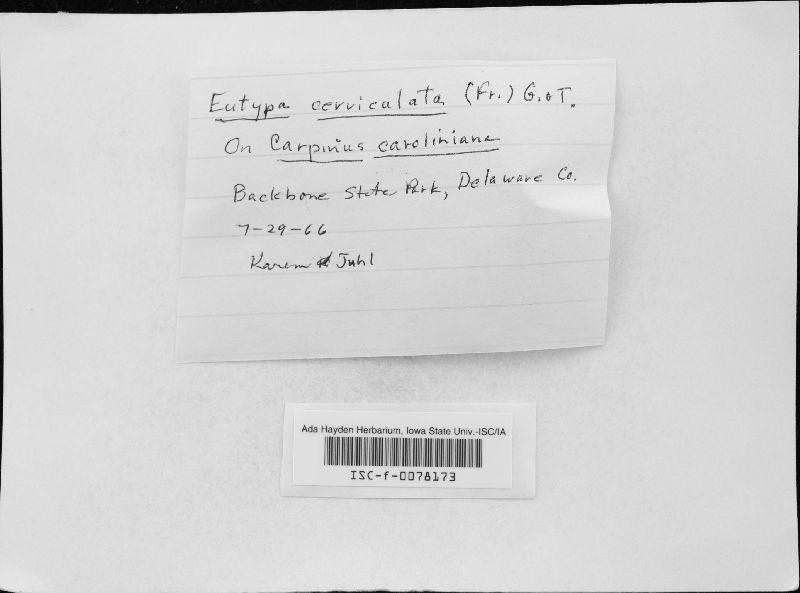 Eutypa cerviculata (Fr.) G. & T.
On Carpinus caroliniana
Backbone State Park, Delaware Co.
7-29-66
Karem Juhl
Ada Hayden Herbarium, Iowa State Univ.-ISC/IA
ISC-f-0078173